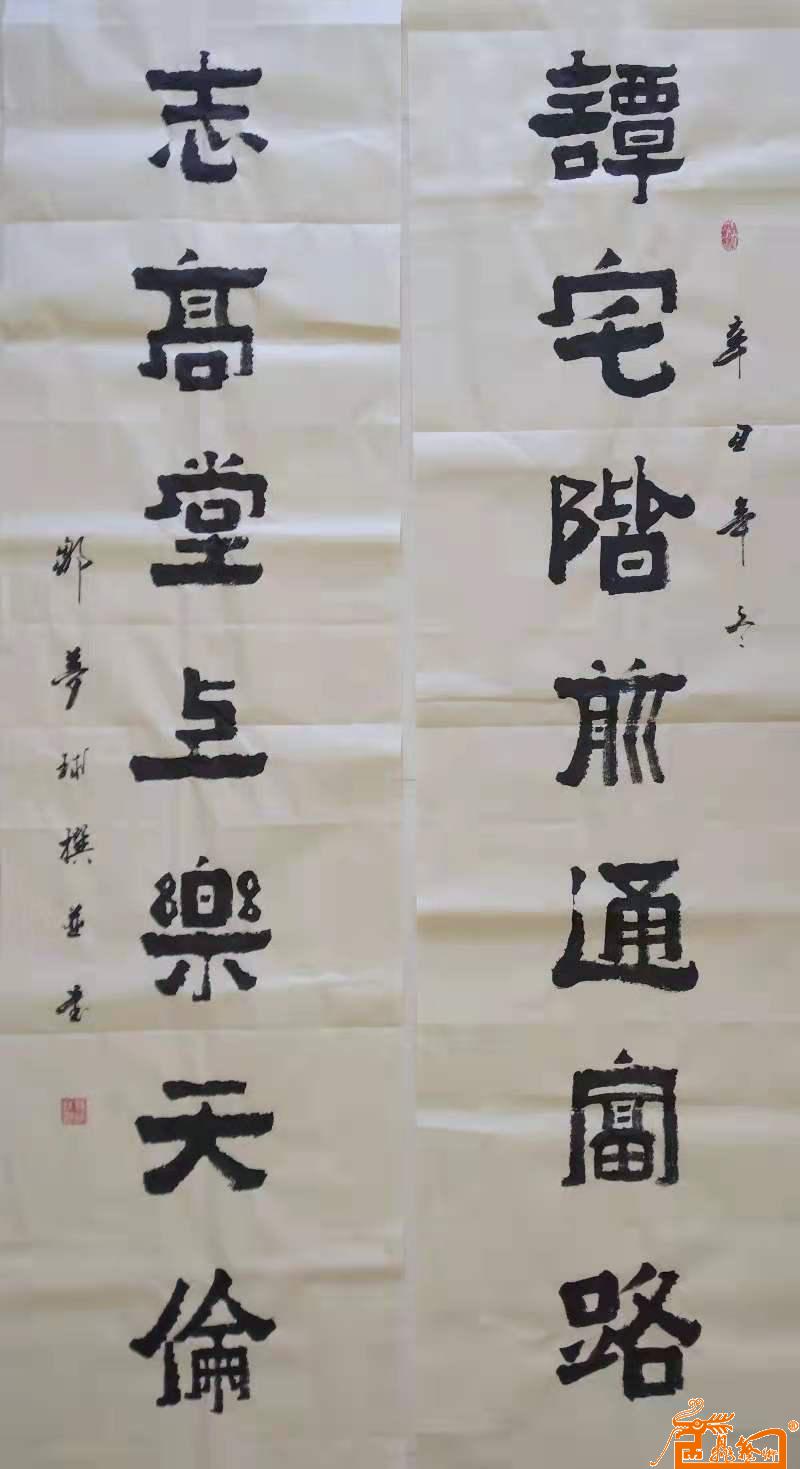 譚宅階前通富路
辛丑年冬
志高堂上樂天倫
鄒夢球撰並书